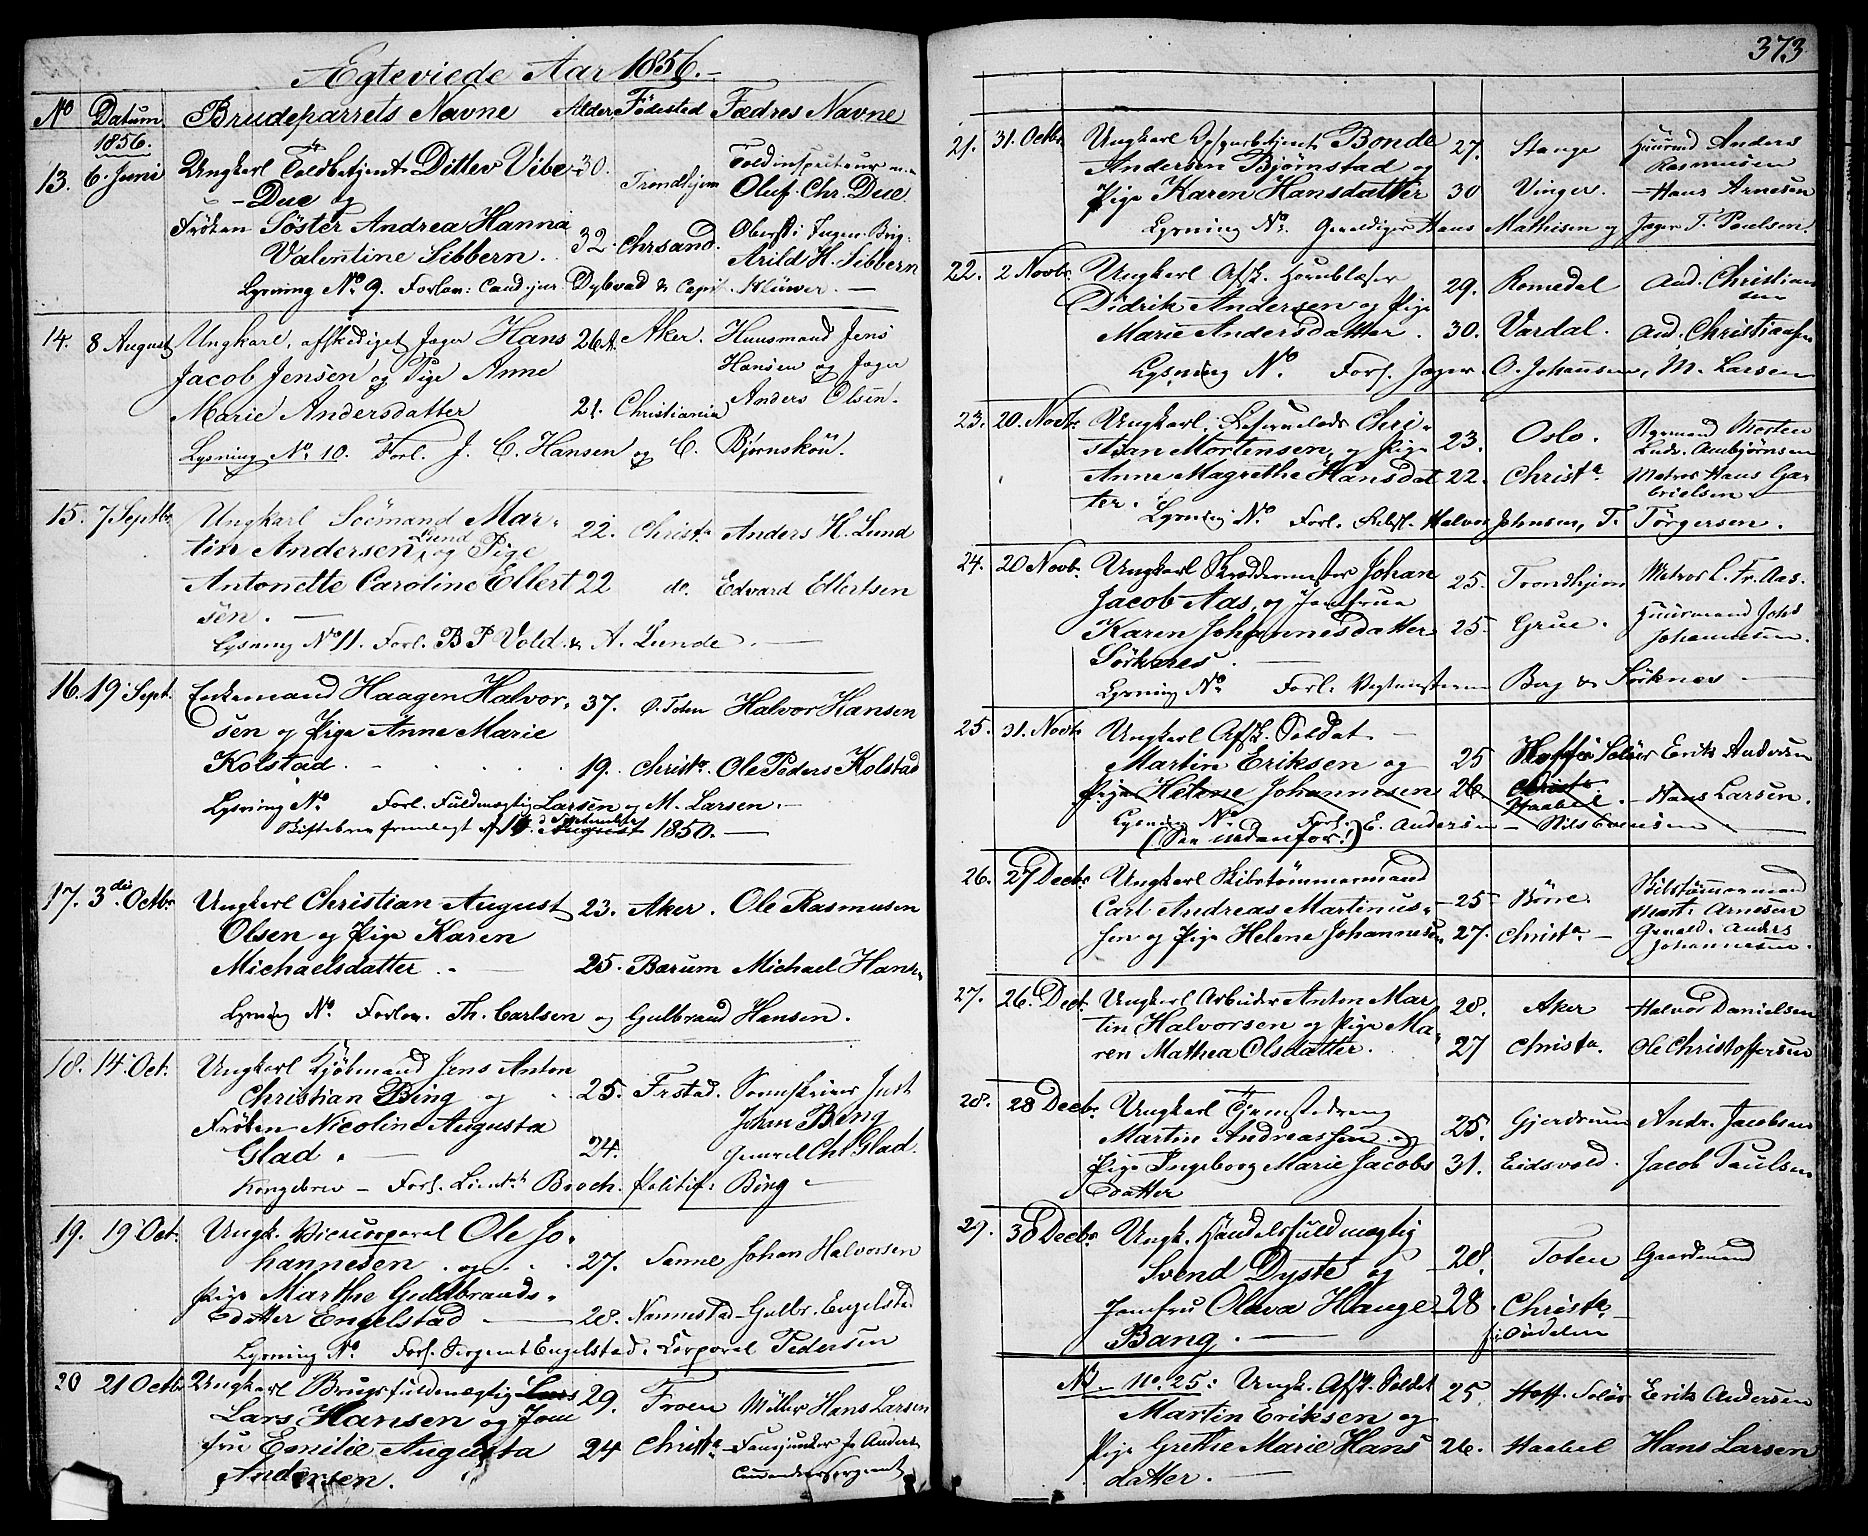 Ægteviede Aar 1856.
No Datum Brudeparrets Navne Alder Fødested Fædres Navne
1856.
13. 6. Juni Ungkarl Toldbetjent Ditlev Vibe 30. Trondhjem Toldinspecteur
Due og Oluf Chr. Due.
Frøken Søster Andrea Hanna 32 Chrsand. Oberst i Ingen. Brig.
Valentine Sibbern. Arild H. Sibbern
Lysning No 9. Forlov: Cand. jur. Dybvad & Capit. Klüwer.
14. 8 August Ungkarl, afskediget Jæger Hans 26 A. Aker. Huusmand Jens
Jacob Jensen og Pige Anne Hansen og Jæger
Marie Andersdatter 21. Christiania Anders Olsen.
Lysning No 10. Forl. J. C. Hansen og C. Bjørnskou.
15. 7 Septbr Ungkarl Søemand Mar- 22. Christa Anders H. Lund
tin Andersen Lund og Pige
Antonette Caroline Ellert 22 do. Edvard Ellertsen
sen.
Lysning No 11. Forl. B P Vold & A. Lunde.
16. 19 Sept. Enkemand Haagen Halvor- 37. Ø. Toten Halvor Hansen
sen og Pige Anne Marie
Kolstad. 19. Christa. Ole Peders Kolstad
Lysning No Forl. Fuldmægtig Larsen og M. Larsen.
Skiftebrev fremlagt af 1 September August 1850.
17. 3die Octbr Ungkarl Christian August 23. Aker. Ole Rasmusen
Olsen og Pige Karen
Michaelsdatter 25. Bærum Michael Hans
Lysning No Forlov. Th. Carlsen og Gulbrand Hansen.
18. 14 Oct. Ungkarl Kjøbmand Jens Anton
Christian Bing og 25. Frstad. Sorenskriver Just
Frøken Nicoline Augusta Johan Bing
Glad 24. General Chr Glad.
Kongebrev - Forl. Lieutn. Broch. Politif. Bing
19. 19 Oct. Ungk. Vicecorporal Ole Jo-
hannesen og 27. Sanne Johan Halvorsen
Pige Marthe Guldbrands-
datter Engelstad 28. Nannestad Gulbr. Engelstad
Lysning No Forl. Sergent Engelstad. Corporal Pedersen
20 21 Octbr Ungkarl Brugsfuldmægtig Lars 29. Froen Møller Hans Larsen
Lars Hansen og Jom
fru Emilie Augusta 24 Christa Fanejunker Jo Anders
Andersen.
373
21. 31. Octbr Ungkarl Bonde 27. Stange Huusmd Anders
Andersen Bjørnstad og Rasmusen
Pige Karen Hansdatter 30 Vinger. Hans Arnesen
Lysning No. Gevaldiger Hans Mathisen og Jæger T. Paulsen.
22. 2 Novbr Ungkarl Afsk. Hornblæser 29. Romedal And. Christian
Didrik Andersen og Pige sen
Marie Andersdatter. 30. Vardal. And. Christiansen
Lysning No Forl. Jæger O. Johansen, M. Larsen
23. 20. Novbr Ungkarl, Chri-
stian Mortensen, og Pige 23. Oslo. Morten
Anne Magrethe Hansdat 22. Christa Matros Hans Ga-
ter. brielsen
Lysning No Forl. Halvor Johnsen, T. Törgersen.
24. 20 Novb. Ungkarl Skræddermester Johan 25. Trondhjem Matros L. Fr. Aas.
Jacob Aas, og Jomfrue
Karen Johannesdatter 25. Grue. Huusmand Johs
Sörknes. Johannesen.
Lysning No Forl. Vegtmesterne Berg & Sörknes
25. 21. Novbr Ungkarl Afsk. Soldat
Martin Eriksen og 25 Hoff i Solør Erik Andersen
Pige Helene Johannesen 26 Christa. Haabel. Hans Larsen.
Lysning No Forl. E. Andersen - Nils Evensen
(See nedenfor!)
26. 27 Decbr Ungkarl Skibstømmermand Skibstømmermand
Carl Andreas Martinus- 25 Böne. Mart. Arnesen
sen og Pige Helene Johannesen 27. Christa Gevald. Anders
Johannesen.
27. 26. Dect. Ungkarl Arbeider Anton Mar 28. Aker Halvor Danielsen
tin Halvorsen og Pige Ma-
ren Mathea Olsdatter. 27 Christa. Ole Christoffersen
28. 28 Decbr Ungkarl Tjenestedreng
Martin Andreassen og 25. Gjerdrum Andr. Jacobsen
Pige Ingeborg Marie Jacobs 31. Eidsvold. Jacob Paulsen
datter
29. 30 Decbr Ungk. Handelsfuldmægtig
Svend Dyste og 28. Toten Gaardmand
Jomfru Olava Hauge 28 Christa
Bang.
NB. No. 25: Ungk. Afsk. Soldat 25 Hoff. Solør Erik Andersen
Martin Eriksen og
Pige Grethe Marie Hans 26. Haabel Hans Larsen
datter.